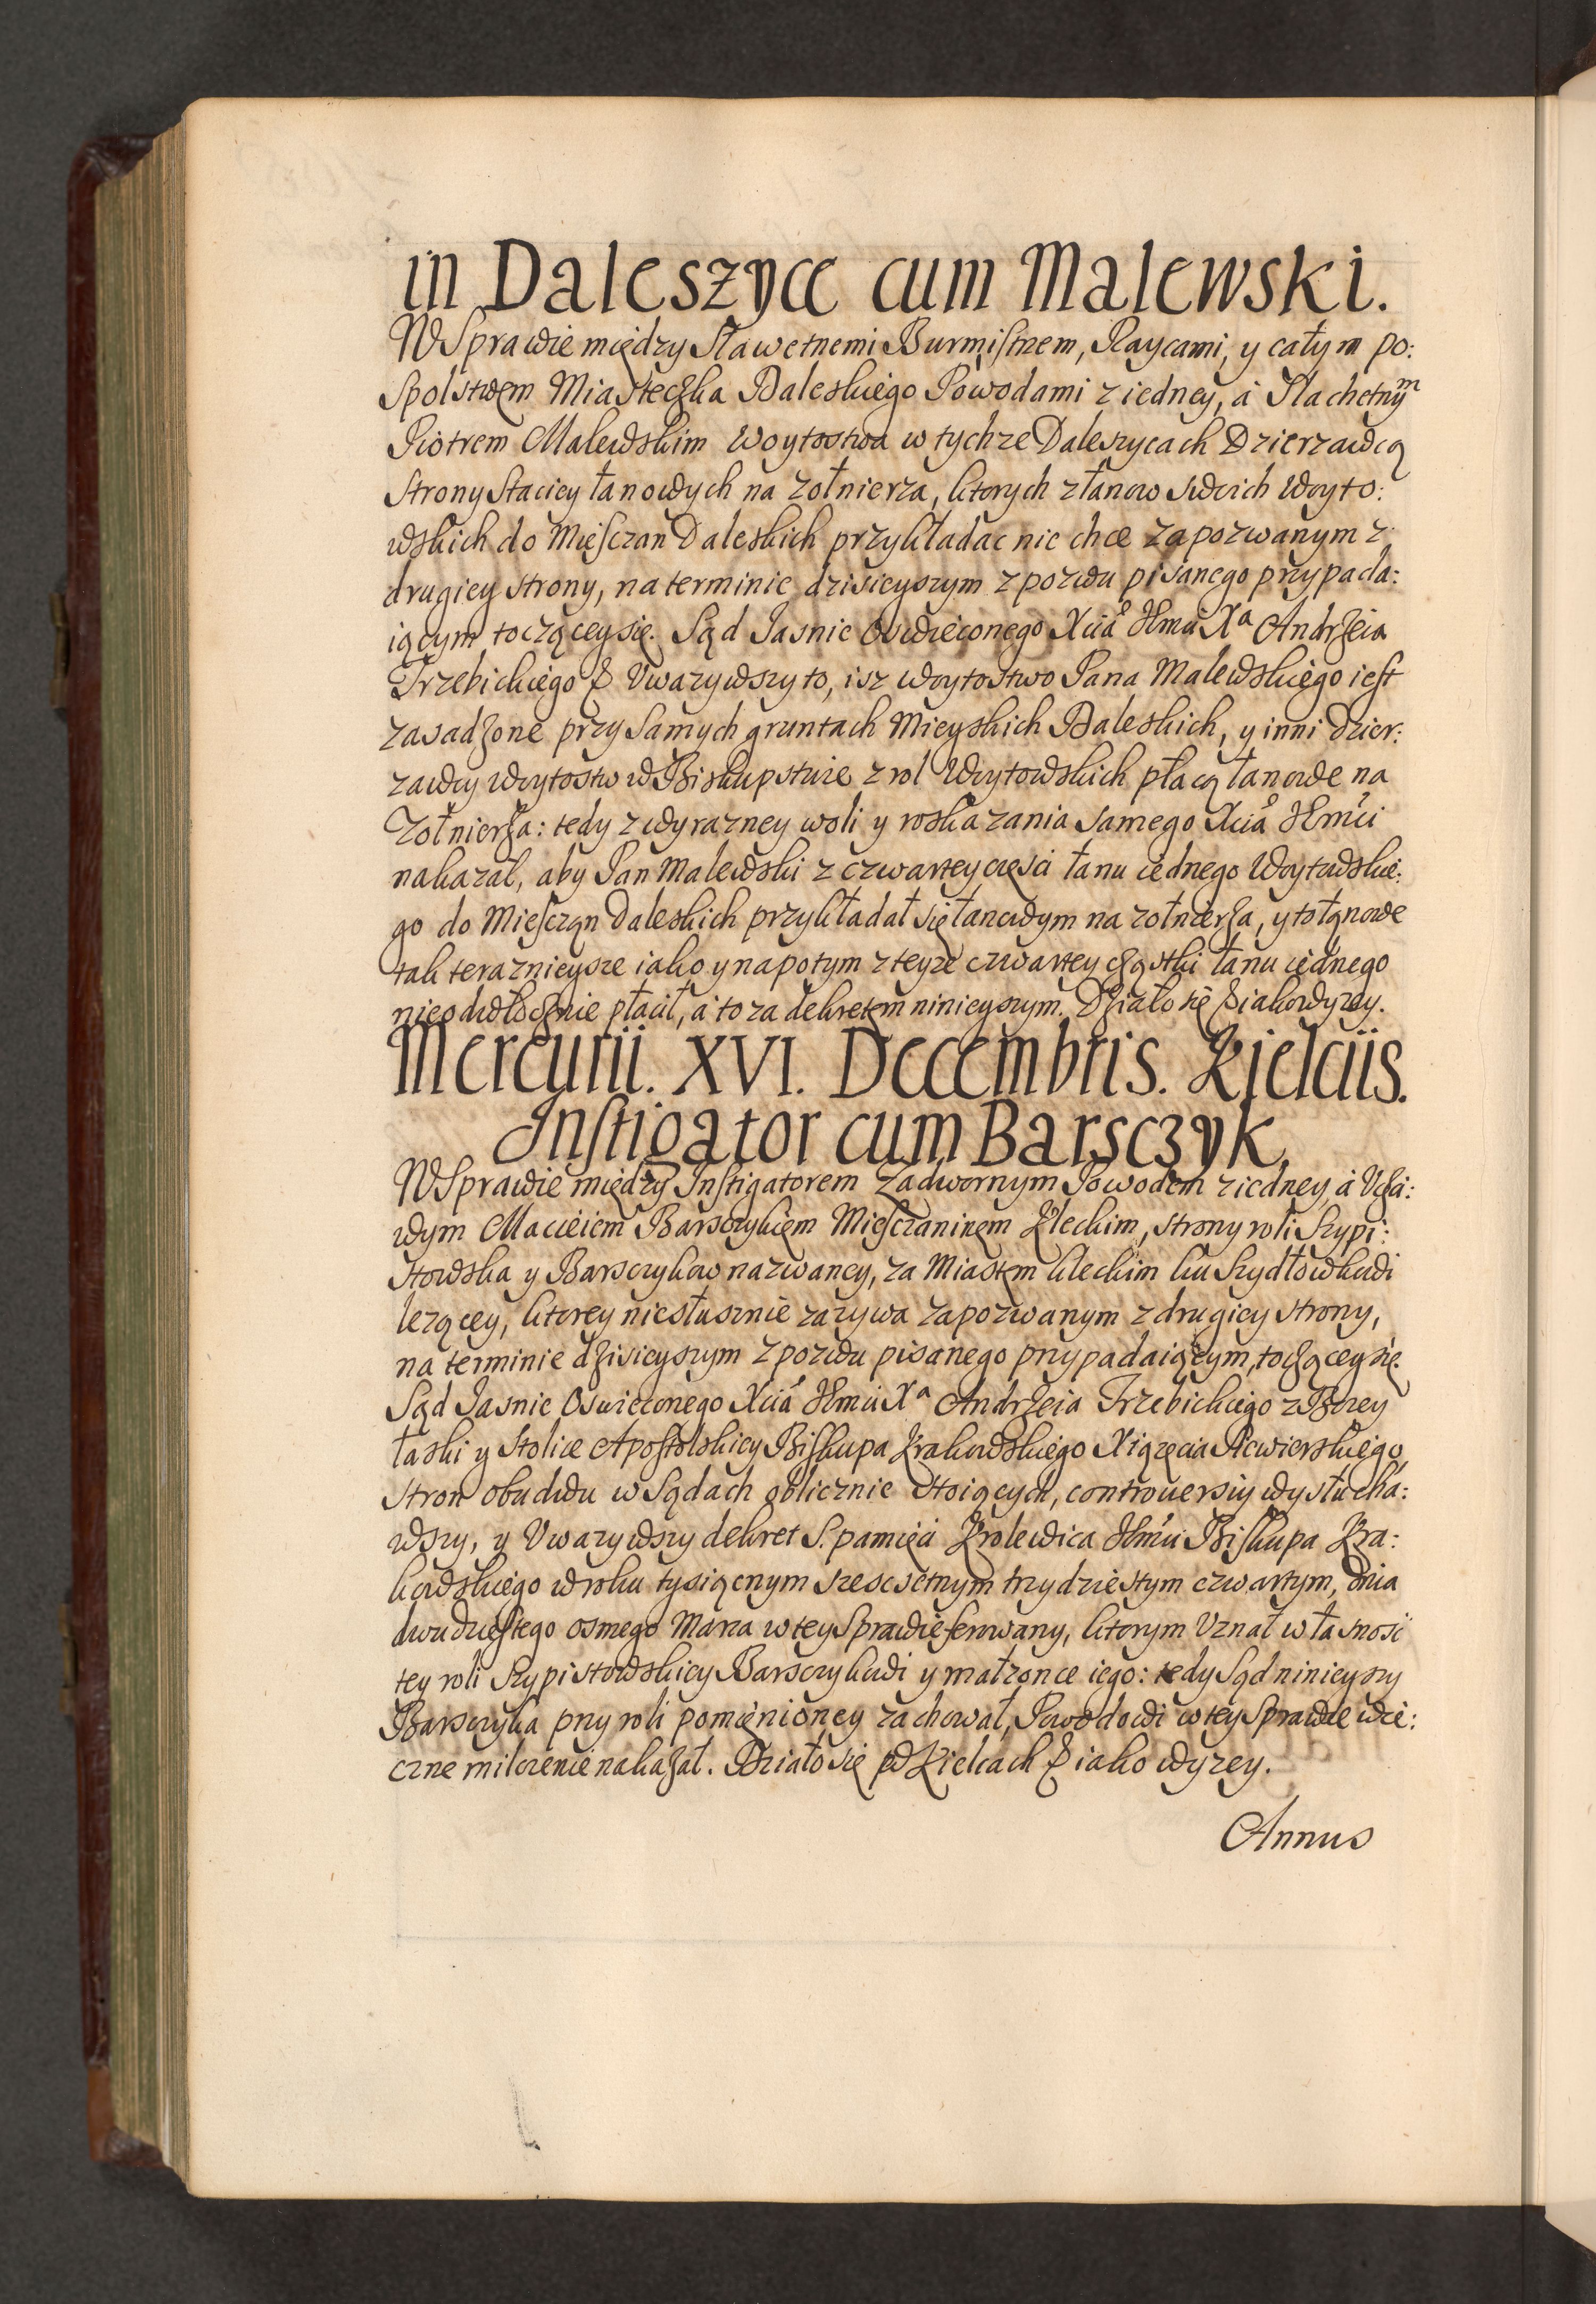 in Daleszyce cum Malewski.
W Sprawie między Sławetnemi Burmistrzem, Raycami, y całym po:
spolstwem Miasteczka Daleskiego Powodami z iedney, á Slachetnym
Piotrem Malewskim Woytostwa w tychze Daleszycach Dzierzawcą
strony staciey łanowych na zołnierza, ktorych z łanow swoich Woyto:
wskich do Miesczan Daleskich przykładac nie chce zapozwanym z
drugiey strony, na terminie dzisieyszym z pozwu pisanego przypada:
iącym toczącey się. Sąd Jasnie Oswieconego Xcia Jmci Xa Andrzeia
Trzebickiego & Vwazywszy to, isz woytostwo Pana Malewskiego iest
zasadzone przy samych gruntach Mieyskich Daleskich, y inni Dzier:
zawcy woytostw w Biskupstwie z rol Woytowskich płacą łanowe na
Zołnierza: tedy z wyrazney woli y roskazania samego Xcia Jmci
nakazal, aby Pan Malewski z czwartey częsci łanu iednego Woytowskie:
go do Miesczan Daleskich przykładał się łanowym na zołnierza, y to łanowe
tak teraznieysze iako y napotym z teyze czwartey cząstki łanu iednego
nieodwłocznie płacił, á to za dekretem ninieyszym. Działo się & iako wyzey.
Mercurii. XVI. Decembris. Kielciis.
Instigator cum Barsczyk.
W Sprawie między Instigatorem Zadwornym Powodem z iedney, á Vczci:
wym Macieiem Barsczykiem Miesczaninem Kleckim, strony roli Szypi:
stowska y Barsczykow nazwaney, za Miastem kleckim ku Szydłowkowi
lezącey, ktorey niesłusznie zazywa zapozwanym z drugiey strony,
na terminie dzisieyszym z pozwu pisanego przypadaiącym, toczącey się.
Sąd Jasnie Oswieconego Xcia Jmci Xa Andrzeia Trzebickiego z Bozey
łaski y Stolice Apostolskiey Biskupa Krakowskiego Xiązęcia Siewierskiego,
stron obudwu w Sądach oblicznie stoiących, controuersiy wysłucha:
wszy, y Vwazywszy dekret S. pamięci Krolewica Jmci Biskupa Kra:
kowskiego w roku tysiącnym szescsetnym trzydziestym czwartym, dnia
dwudziestego osmego Marca w tey Sprawie ferowany, ktorym Vznał własnosc
tey roli Szypistowskiey Barsczykowi y małzonce iego: tedy Sąd ninieyszy
Barsczyka przy roli pomienioney zachował, Powodowi w tey Sprawie wie:
czne milczenie nakazał. Działo się w Kielcach & iako wyzey.
Annus